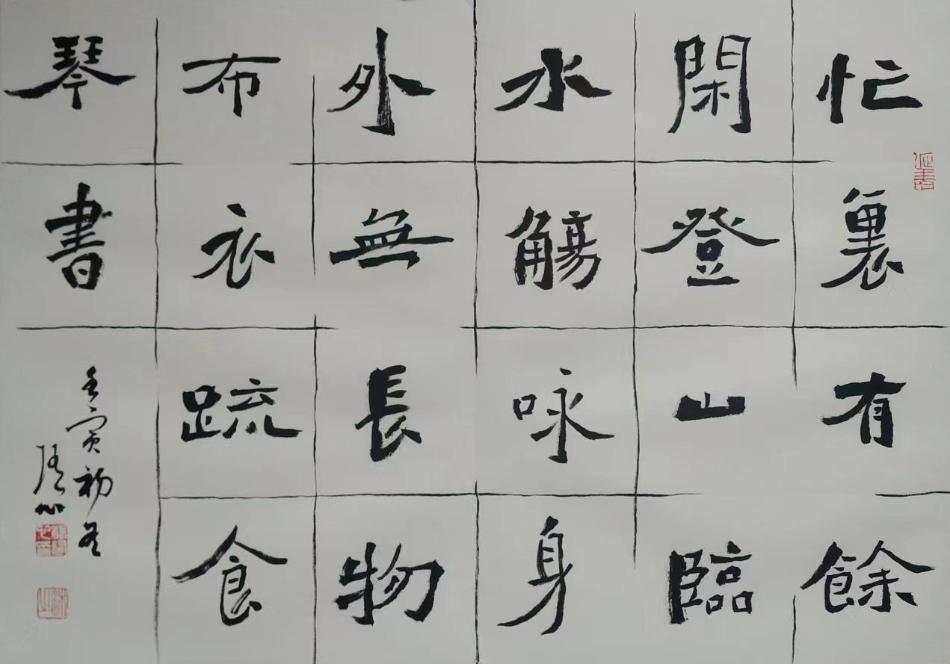 忙裏有餘
閑登山臨
水觴咏身
外無長物
布衣疏食
琴書
壬寅初冬